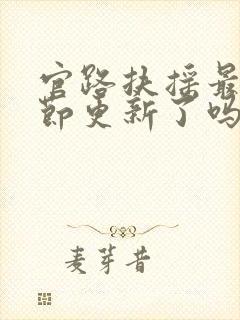 官路扶摇最
节更新了吗
麦芽昔